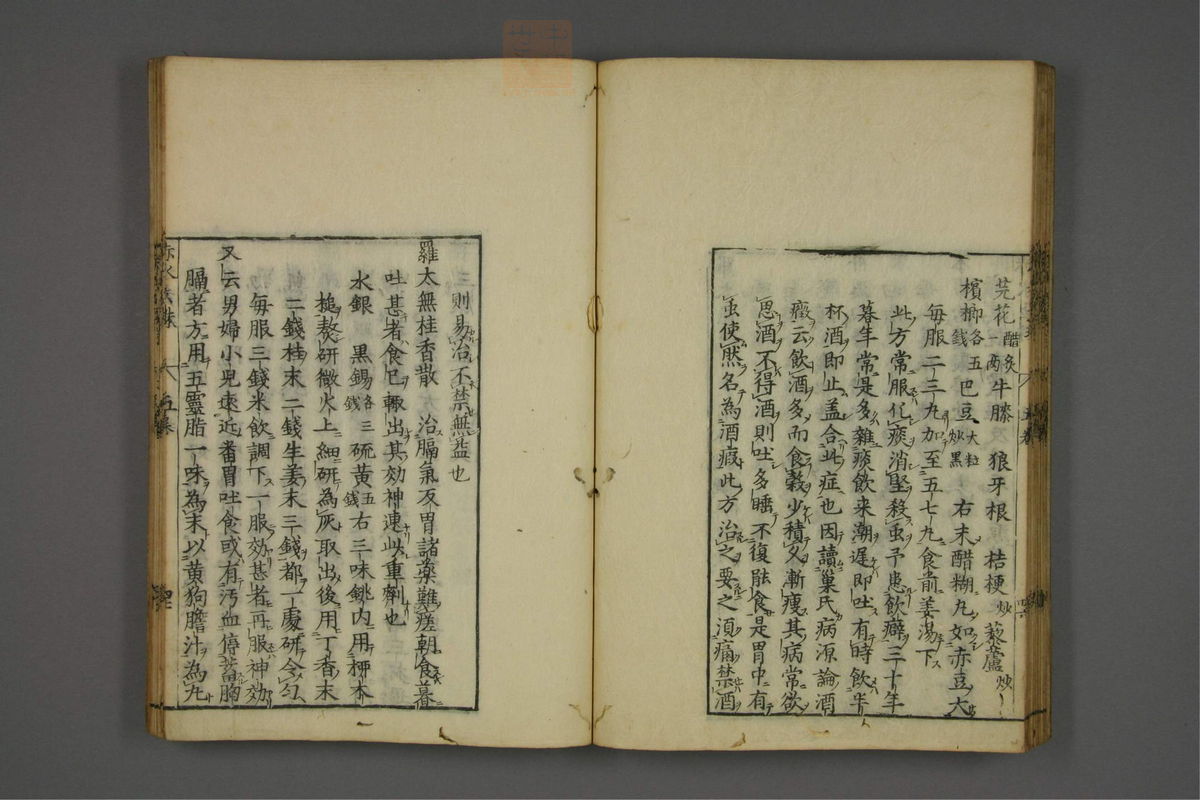 芫花醋炙一両牛膝狼牙根桔梗炒藜蘆炒
檳榔各五錢巴豆大粒炒黒右末醋糊丸如赤豆大
毎服二三丸加至五七丸食前姜湯下
此方常服化痰消堅殺虫予患飲癖三十年
暮年常是多雜痰飲来潮遅即吐有時飲半
杯酒即止盖合此症也因讀巢氏病源論酒
癥云飲酒多而食穀少積久漸痩其病常欲
思酒不得酒則吐多睡不復能食是胃中有
虫使然名為酒瘕此方治之要之須痛禁酒
三則易治不禁無益也
羅太無桂香散治膈氣反胃諸藥難瘥朝食暮
吐甚者食已輙出其効神速此重劑也
水銀黒錫各三錢硫黄五錢右三味銚内用柳木
槌熬研微火上細研為灰取出後用丁香末
二錢桂末二錢生姜末三錢都一處研令匀
毎服三錢米飲調下一服効甚者再服神効
又云男婦小児遠近番胃吐食或有汚血停蓄胸
膈者方用五靈脂一味為末以黄狗膽汁為丸